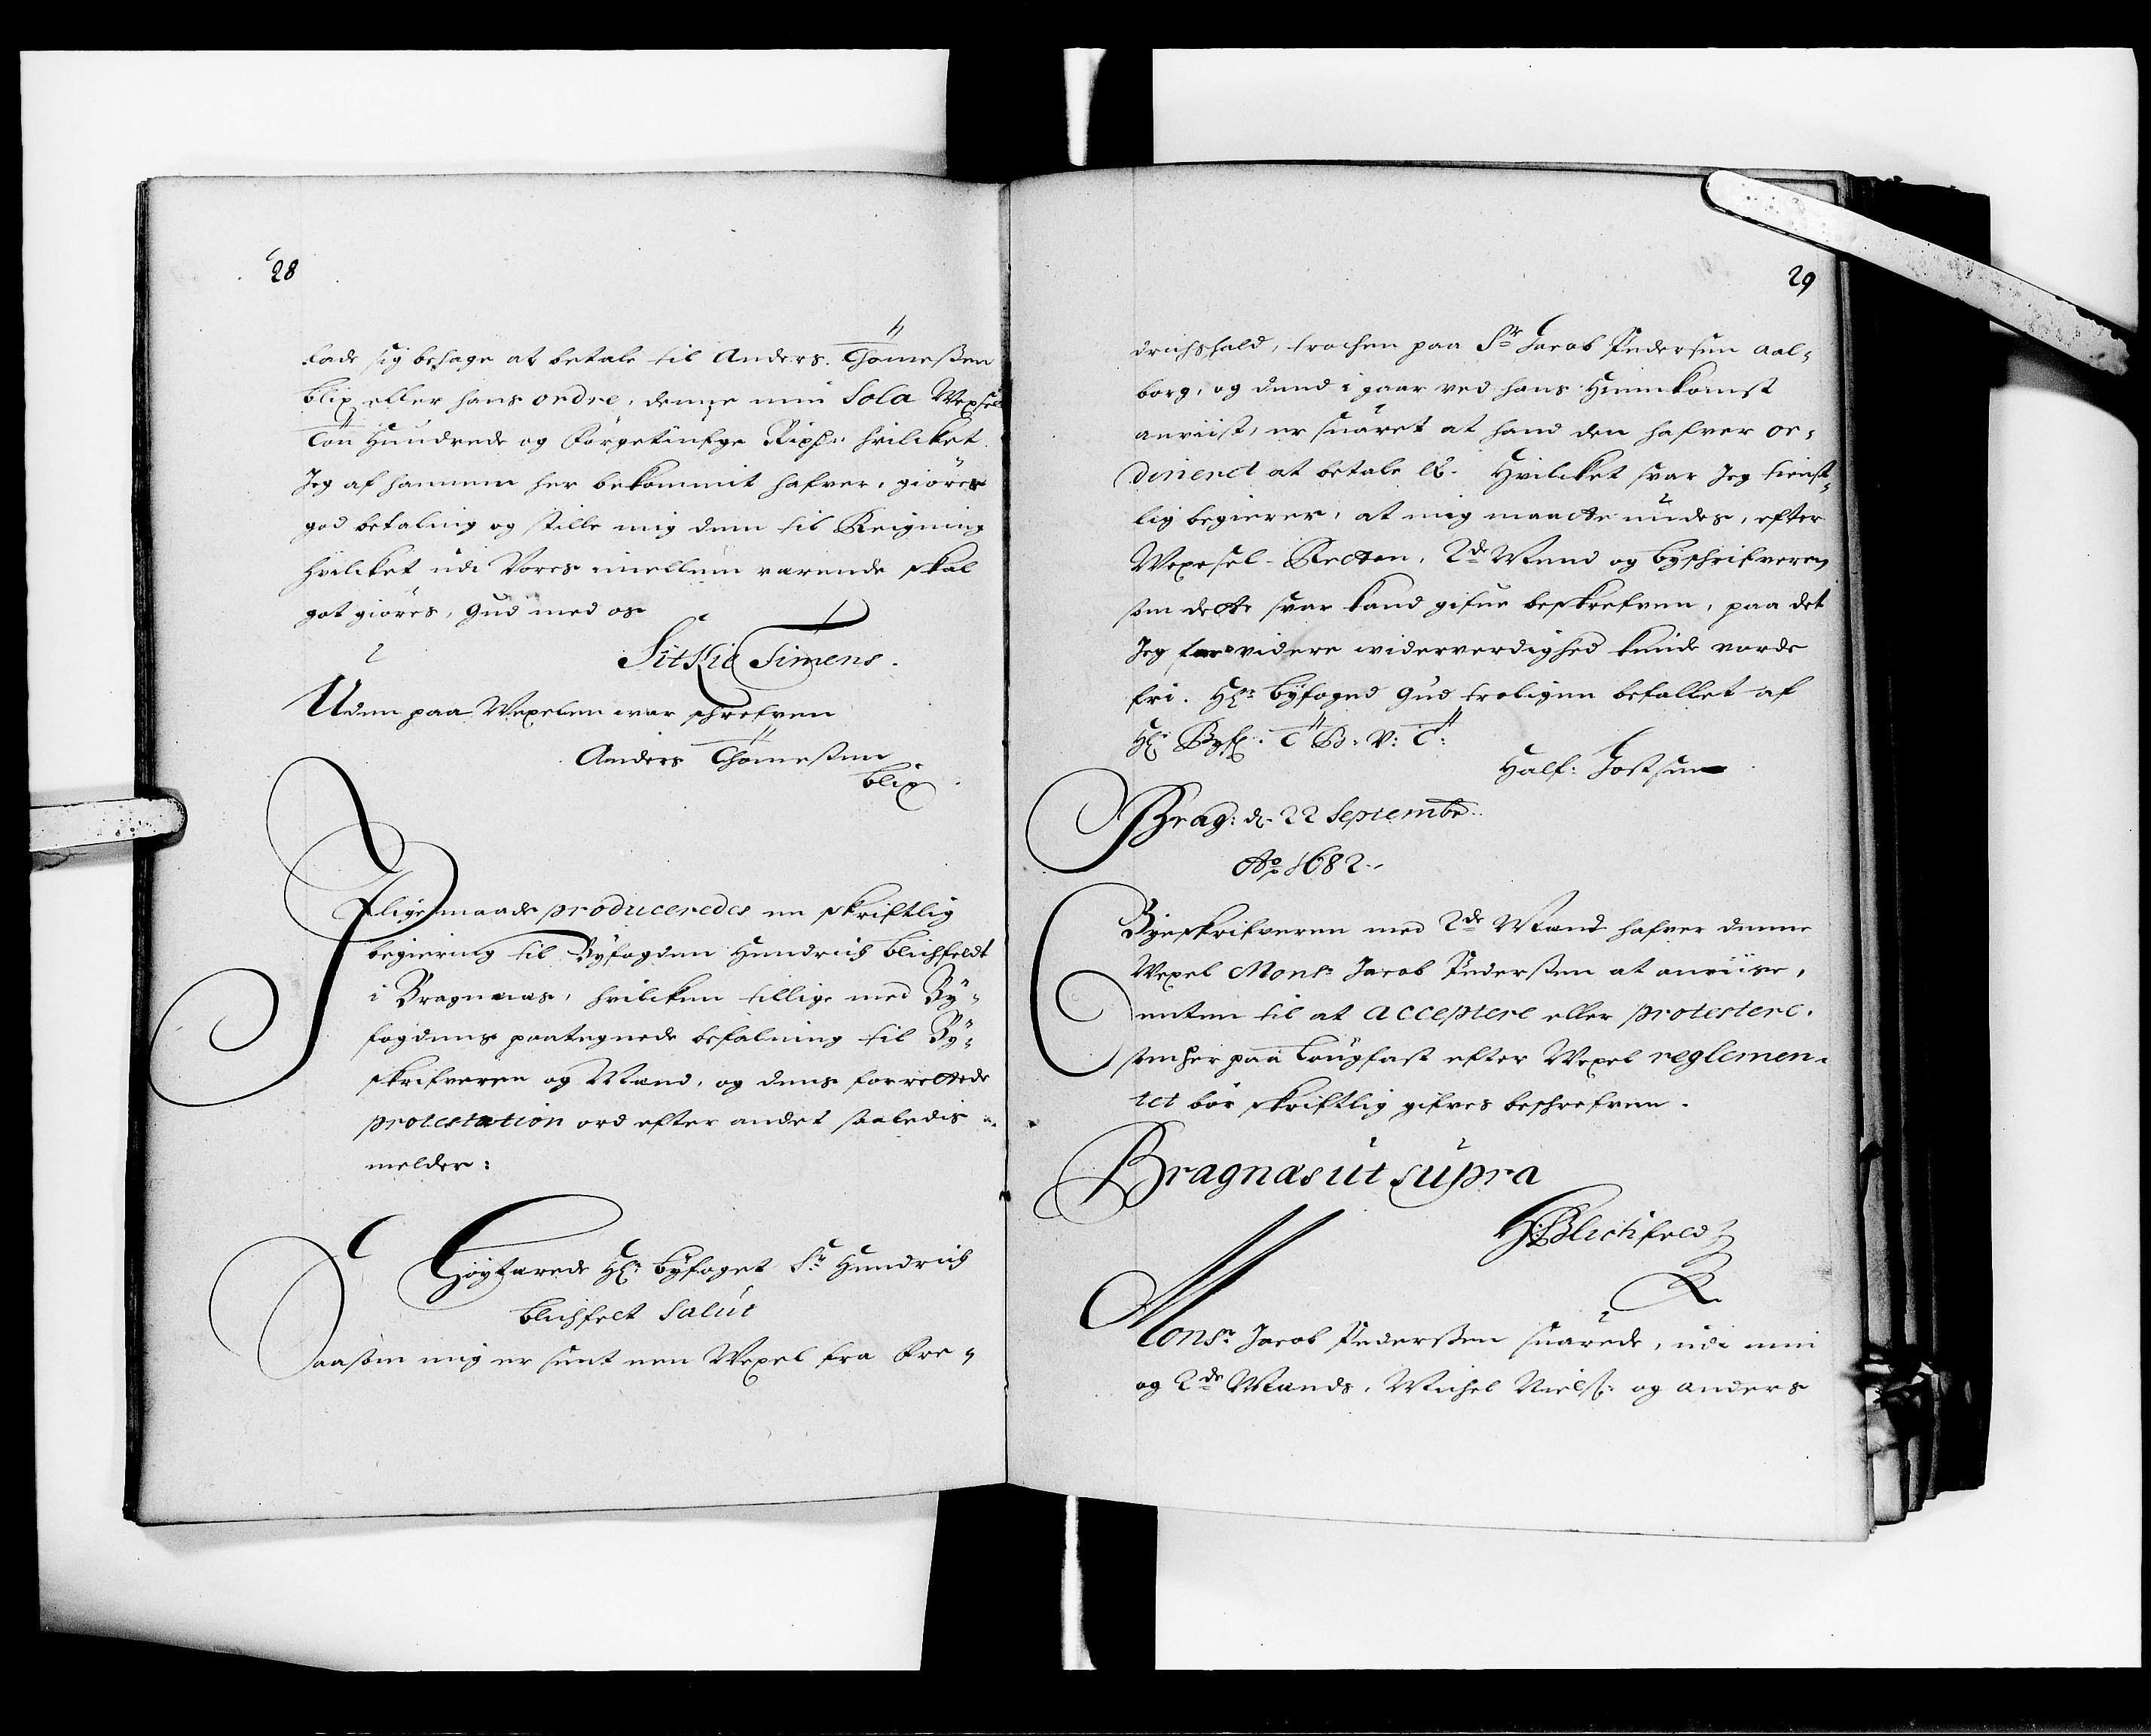 28
lade sig behage at betale til Anders Thomeßen
Blix eller hans ordre, denne min Sola Wexsel
Tou Hundrede og Förgetinfge Rixdr: hvilcket
Jeg af hannem her bekommit hafver, giöres
god betaling og stille mig dem til Reigning
Hvilcket udi Vores imellum varende skal
got giöres, Gud med os
Sitskie Simens.
Uden paa Wexelen war schrefven
Anders Thomeßen
Blix
J lige maade produceredes en skriftlig
begiering til Byfogden Hendrich Blichfeldt
i Bragnæas, hvilcken tillige med By-
fogdens paategnede befalning til By-
skrifveren og Mænd, og dens forrettede
protestation ord efter andet saaledis
melder:
Höytærede Hr: Byfoget Sr: Hendrich
Blichfelt Salut
Saasom mig er sent een Wexel fra Fre-
29
drichshald, trochen paa Sr Jacob Pedersen Aal-
borg, og dend i gaar ved hans Hiemkomst
anviist, er suaret at hand den hafver or-
dineret at betale etc. Hvilcket svar Jeg tienst-
lig begierer, at mig maatte undes, efter
Wexesel-Retten, 2de Mend og Byschrifveren
som dette svar kand gifve beskrefven, paa det
Jeg for videre widerverdighed kunde vorde
fri. Hr: Byfoged Gud troligen befallet af
Hr: Byf: T B: V: T:
Half: Jostsen
Brag: d. 22 Septembr:
Ao 1682.
Byeskrifveren med 2de Mænd hafver denne
Wexel Monsr Jacob Pederßen at anviise,
enten til at acceptere eller protestere,
som her paa Laugfast efter Wexel reglemen-
tet bör skriftlig gifves beschrefven.
Bragnæs ut supra
H: Blichfeld
Monsr Jacob Pederßen suarede, udi min
og 2de Mænds, Michel Nielß: og Anders